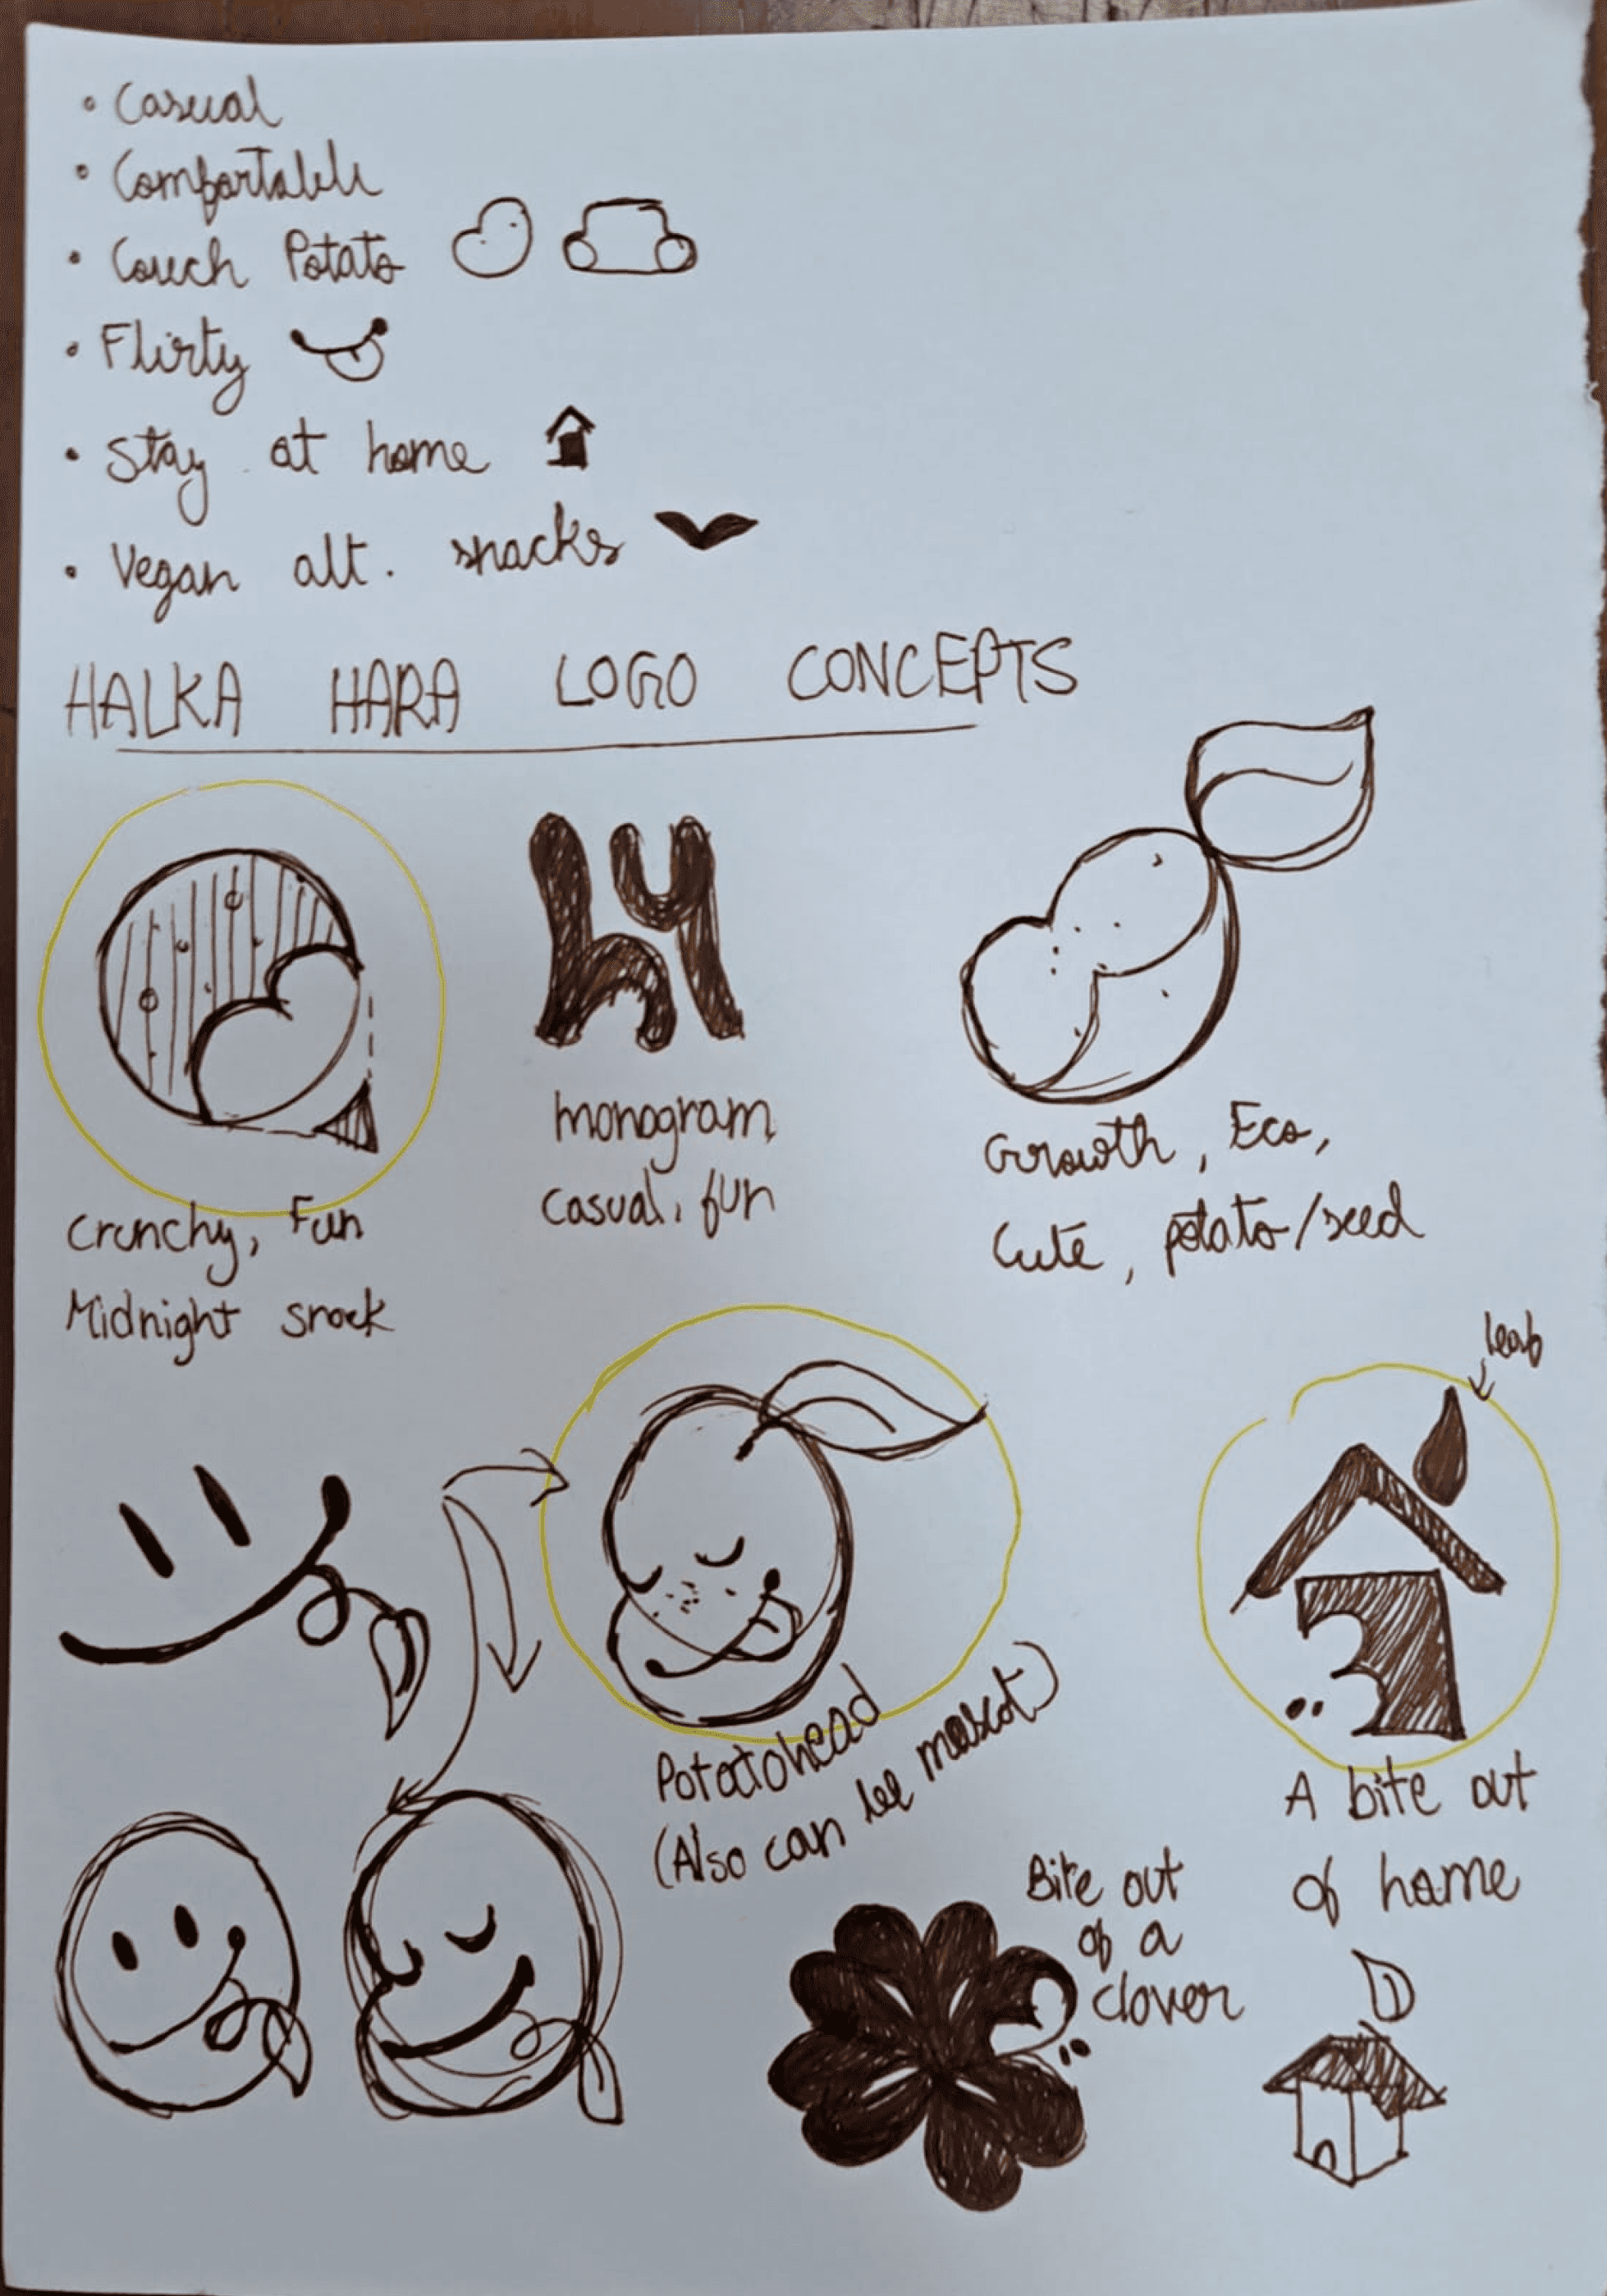 • Casual
• Comfortable
• Couch Potato
• Flirty
• Stay at home
• Vegan alt. snacks
HALKA HARA LOGO CONCEPTS
Crunchy, Fun
Midnight snack
monogram
casual, fun
Growth, Eco,
Cute, potato/seed
leaf
Potatohead
(Also can be mascot)
A bite out
of home
Bite out
of a
clover